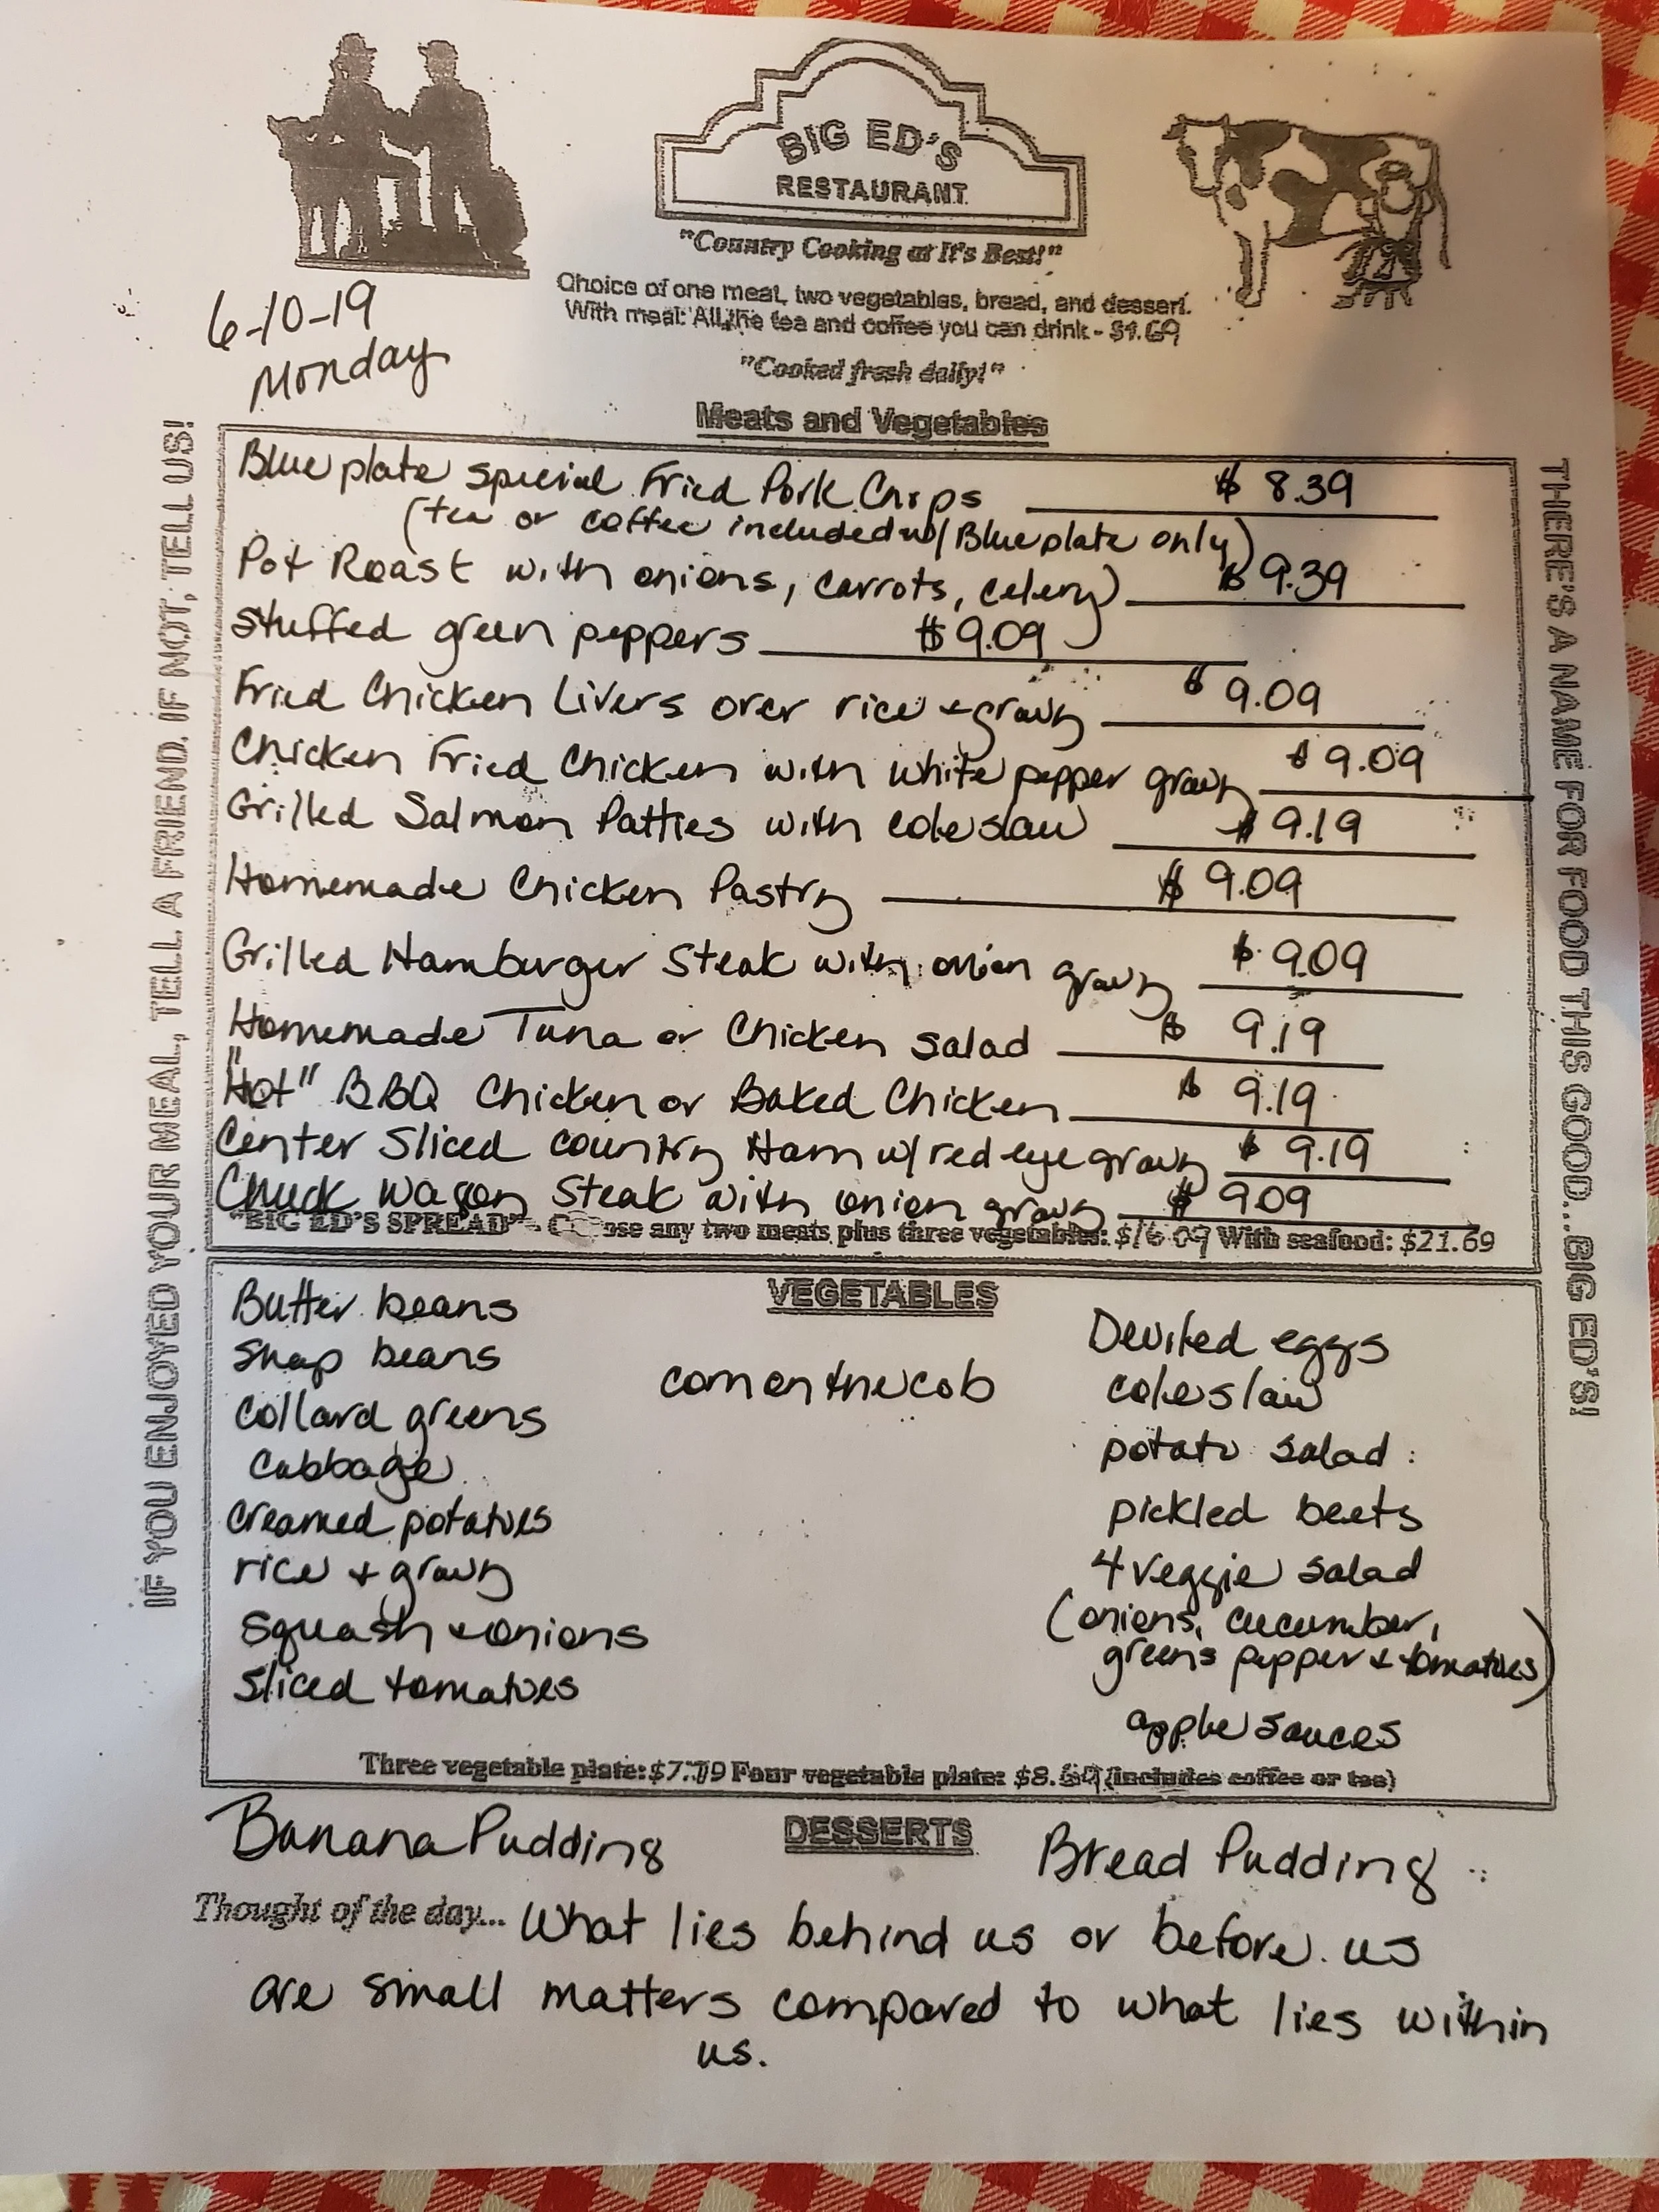 BIG ED'S
RESTAURANT
"Country Cooking at It's Best!"
Choice of one meat, two vegetables, bread, and dessert.
With meal: All the tea and coffee you can drink - $1.69
"Cooked fresh daily!"
6-10-19
Monday
Meats and Vegetables
Blue plate special Fried Pork Chops $ 8.39
(tea or coffee included w/ Blue plate only)
Pot Roast with onions, carrots, celery $ 9.39
Stuffed green peppers $ 9.09
Fried Chicken Livers over rice + gravy $ 9.09
Chicken Fried Chicken with white pepper gravy $ 9.09
Grilled Salmon Patties with coleslaw $ 9.19
Homemade Chicken Pastry $ 9.09
Grilled Hamburger Steak with onion gravy $ 9.09
Homemade Tuna or Chicken salad $ 9.19
"Hot" BBQ Chicken or Baked Chicken $ 9.19
Center Sliced country Ham w/ red eye gravy $ 9.19
Chuck Wagon Steak with onion gravy $ 9.09
"BIG ED'S SPREAD" - Choose any two meats plus three vegetables: $16.09 With seafood: $21.69
IF YOU ENJOYED YOUR MEAL, TELL A FRIEND. IF NOT, TELL US!
THERE'S A NAME FOR FOOD THIS GOOD...BIG ED'S!
VEGETABLES
Butter beans
Snap beans
Collard greens
Cabbage
Creamed potatoes
rice + gravy
Squash + onions
Sliced tomatoes
corn on the cob
Deviled eggs
coleslaw
potato salad
pickled beets
4 veggie salad
(onions, cucumber,
greens pepper + tomatoes)
apple sauces
Three vegetable plate: $7.79 Four vegetable plate: $8.69 (includes coffee or tea)
DESSERTS
Banana Pudding Bread Pudding
Thought of the day... What lies behind us or before us
are small matters compared to what lies within
us.